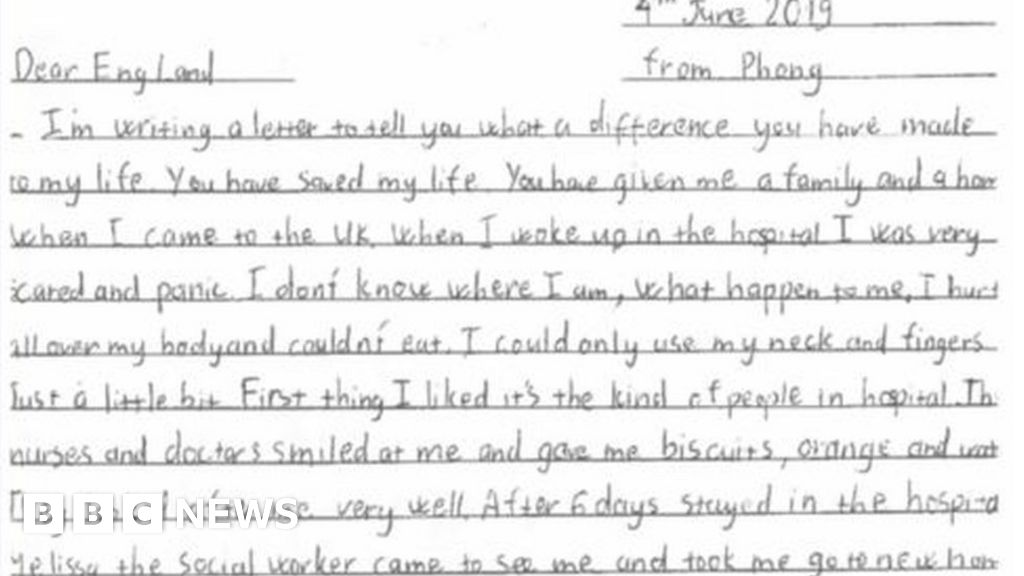 4th June 2019
Dear England
from Phong
- I'm writing a letter to tell you what a difference you have made
to my life. You have saved my life. You have given me a family and a hom
when I came to the UK. When I woke up in the hospital I was very
scared and panic. I don't know where I am, what happen to me, I hurt
all over my body and couldn't eat. I could only use my neck and fingers
Just a little bit First thing I liked it's the kind of people in hospital. Th
nurses and doctors smiled at me and gave me biscuits, orange and wat
very well. After 6 days stayed in the hospita
BBC NEWS
Melissa the social worker came to see me and took me go to new hom